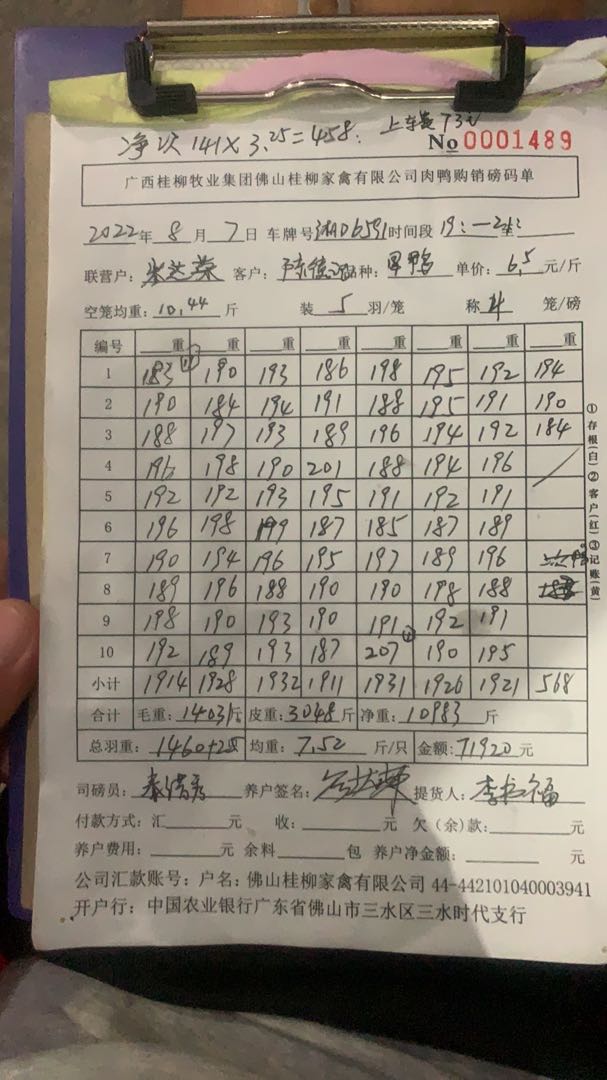 净次 141 X 3.25 = 458:
No 0001489
广西桂柳牧业集团佛山桂柳家禽有限公司肉鸭购销磅码单
2022年 8 月 7 日 车牌号 时间段 19:
联营户: 客户: 种: 单价: 6.5 元/斤
空笼均重: 10.44 斤 装 5 羽/笼 称 4 笼/磅
编号 重 重 重 重 重 重 重 重
1 183 190 193 186 198 195 192 194
2 190 184 194 191 188 195 191 190
3 188 197 193 189 196 194 192 184
4 196 198 190 201 188 194 196
5 192 192 193 195 191 192 191
6 196 198 199 187 185 187 189
7 190 194 196 195 197 189 196
8 189 196 188 190 190 198 188
9 198 190 193 190 191 192 191
10 192 189 193 187 207 190 195
小计 1914 1928 1932 1911 1931 1926 1921 568
合计 毛重: 14031斤 皮重: 3048斤 净重: 10983 斤
总羽重: 1460+ 均重: 7.52 斤/只 金额: 71920 元
司磅员: 养户签名: 提货人:
付款方式: 汇 元 收: 元 欠(余)款: 元
养户费用: 元 余料 包 养户净金额: 元
公司汇款账号: 户名: 佛山桂柳家禽有限公司 44-442101040003941
开户行: 中国农业银行广东省佛山市三水区三水时代支行
①存根(白)②客户(红)③记账(黄)